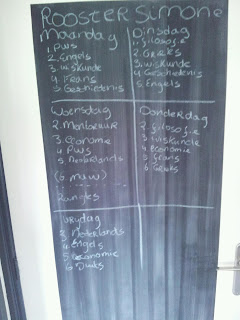 Rooster Simone
Maandag
1. PWS
2. Engels
3. wiskunde
4. Frans
5. Geschiedenis
Dinsdag
1. filosofie
2. Grieks
3. wiskunde
4. Geschiedenis
5. Engels
Woensdag
3. Economie
4. PWS
5. Nederlands
(6. maw)
Donderdag
2. filosofie
3. wiskunde
4. economie
5. frans
6. Grieks
Vrijdag
3. Nederlands
4. Engels
5. economie
6. Duits